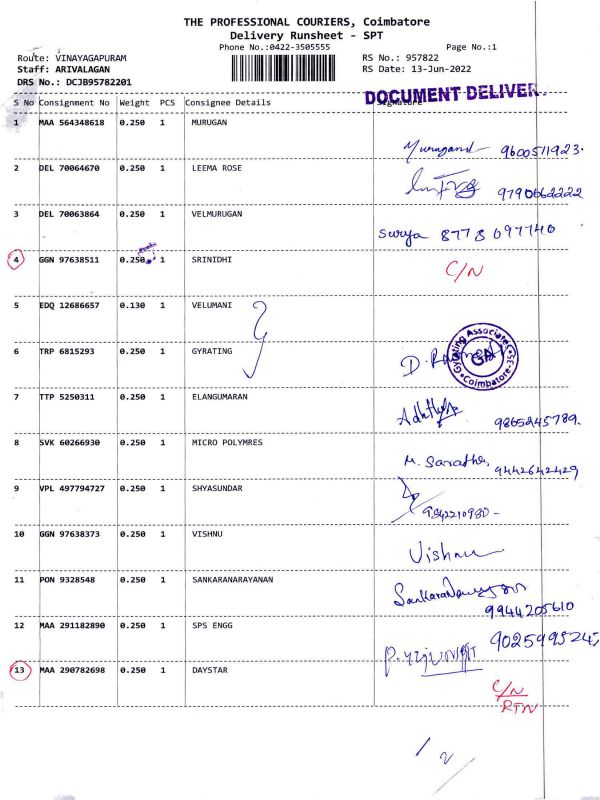 THE PROFESSIONAL COURIERS, Coimbatore
Delivery Runsheet - SPT
Phone No.:0422-3505555
Page No.:1
Route: VINAYAGAPURAM
RS No.: 957822
Staff: ARIVALAGAN
RS Date: 13-Jun-2022
DRS No.: DCJB95782201
DOCUMENT DELIVER
S No Consignment No Weight PCS Consignee Details Signature
1 MAA 564348618 0.250 1 MURUGAN
9600511923.
2 DEL 70064670 0.250 1 LEEMA ROSE
9790662222
3 DEL 70063864 0.250 1 VELMURUGAN
Surya 8778 097740
4 GGN 97638511 0.250 1 SRINIDHI
C/N
5 EDQ 12686657 0.130 1 VELUMANI
6 TRP 6815293 0.250 1 GYRATING
Gyrating Associates
GA
Coimbatore-35
7 TTP 5250311 0.250 1 ELANGUMARAN
9865245789.
8 SVK 60266930 0.250 1 MICRO POLYMRES
M. Saratha,
9442642429
9 VPL 497794727 0.250 1 SHYASUNDAR
9842210980 -
10 GGN 97638373 0.250 1 VISHNU
Vishnu
11 PON 9328548 0.250 1 SANKARANARAYANAN
9944205610
12 MAA 291182890 0.250 1 SPS ENGG
13 MAA 290782698 0.250 1 DAYSTAR
C/N
RTN